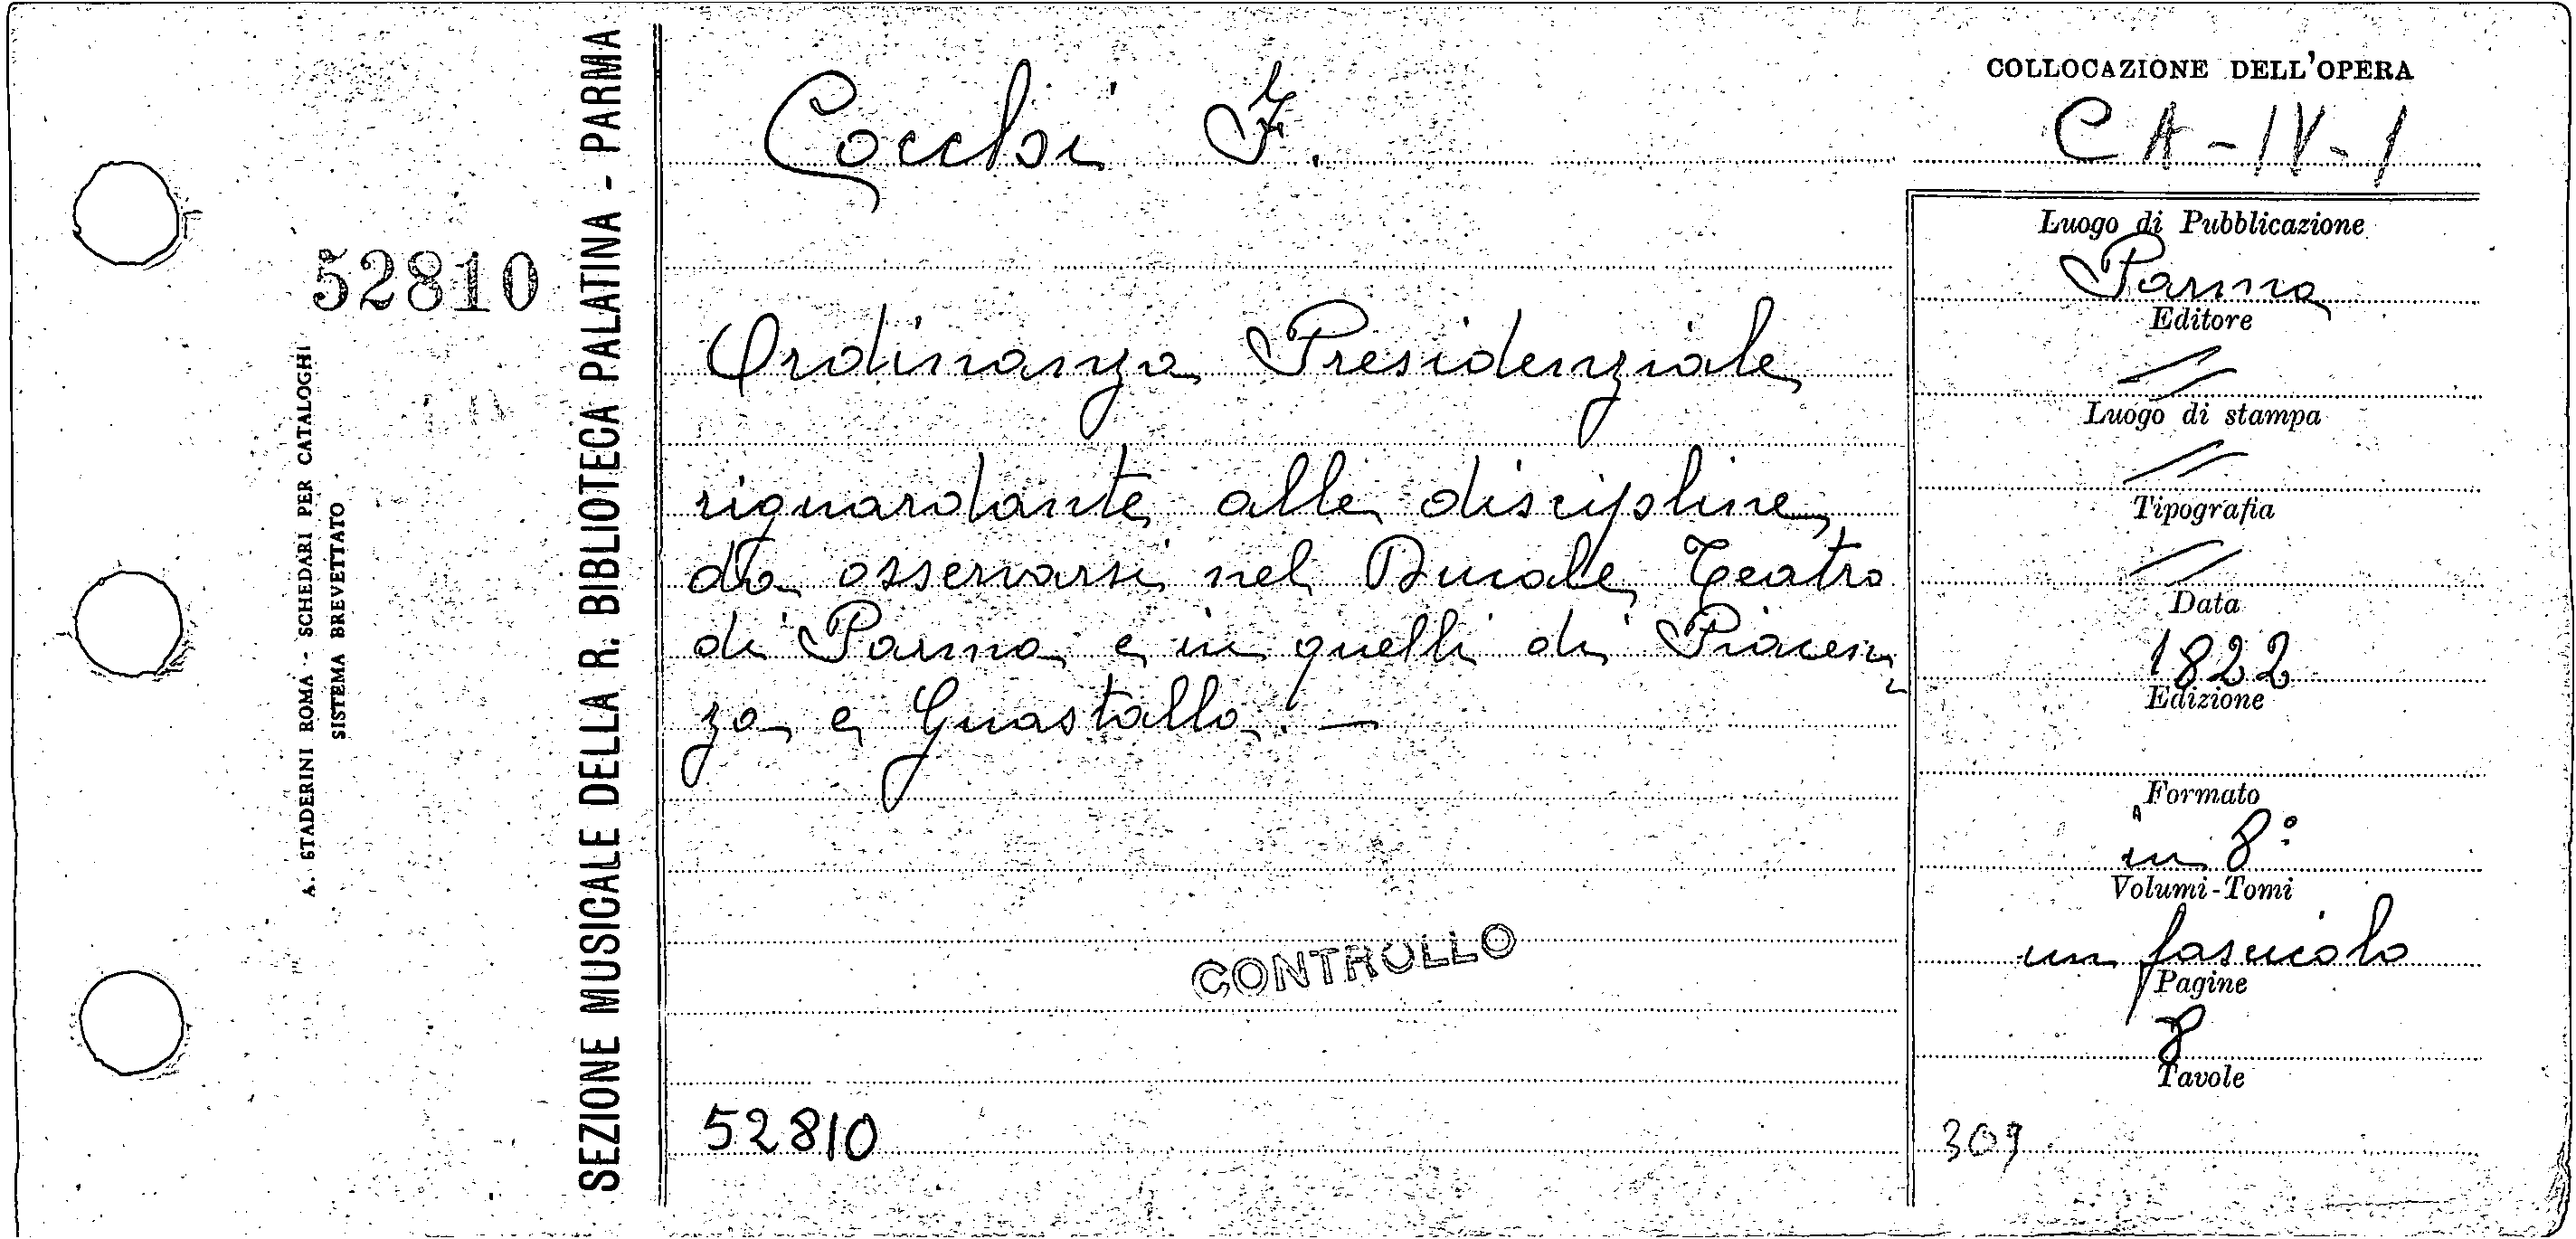 SEZIONE MUSICALE DELLA R. BIBLIOTECA PALATINA - PARMA
A. STADERINI ROMA - SCHEDARI PER CATALOGHI
SISTEMA BREVETTATO
52810
Cocchi F.
Ordinanza Presidenziale
riguardante alle discipline
da osservarsi nel Ducale Teatro
di Parma e in quelli di Piacen-
za e Guastalla. —
CONTROLLO
52810
COLLOCAZIONE DELL'OPERA
CA-IV-1
Luogo di Pubblicazione
Parma
Editore
//
Luogo di stampa
//
Tipografia
//
Data
1822
Edizione
Formato
in 8°
Volumi-Tomi
un fascicolo
Pagine
8
Tavole
309